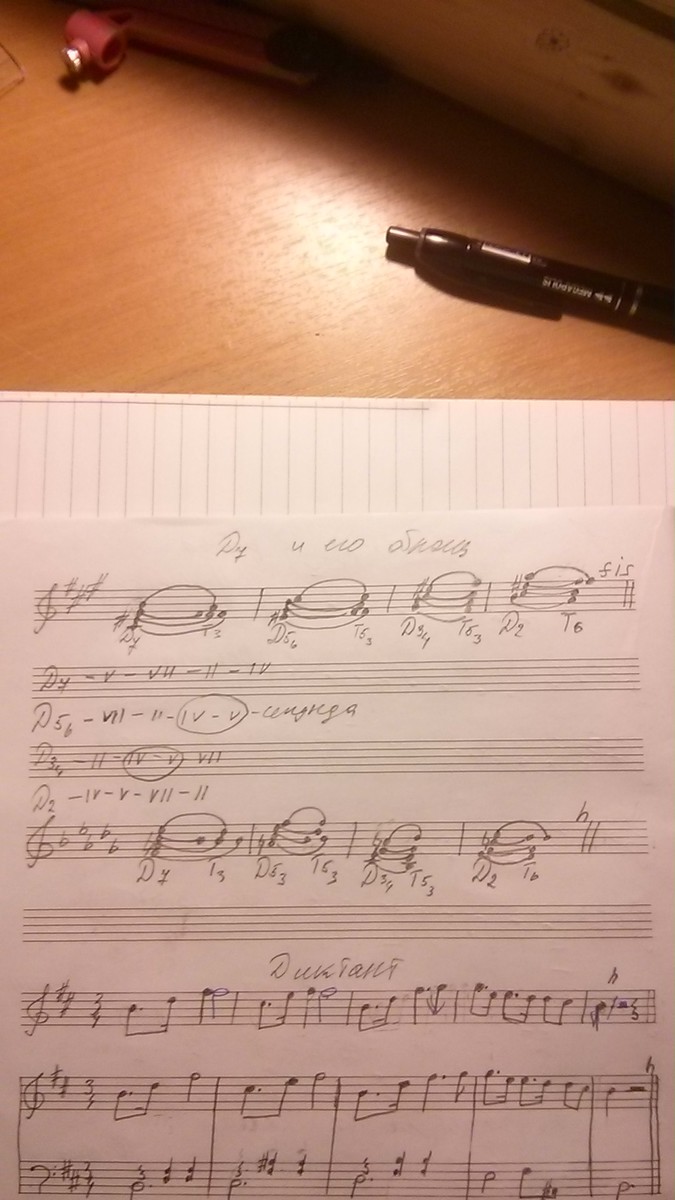 D7 и его обращ
fis
D7 T3 D56 T53 D34 T53 D2 T6
D7 - V - VII - II - IV
D56 - VII - II - IV - V - секунда
D34 - II - IV - V VII
D2 - IV - V - VII - II
h
D7 T3 D53 T53 D34 T53 D2 T6
Диктант
h
h